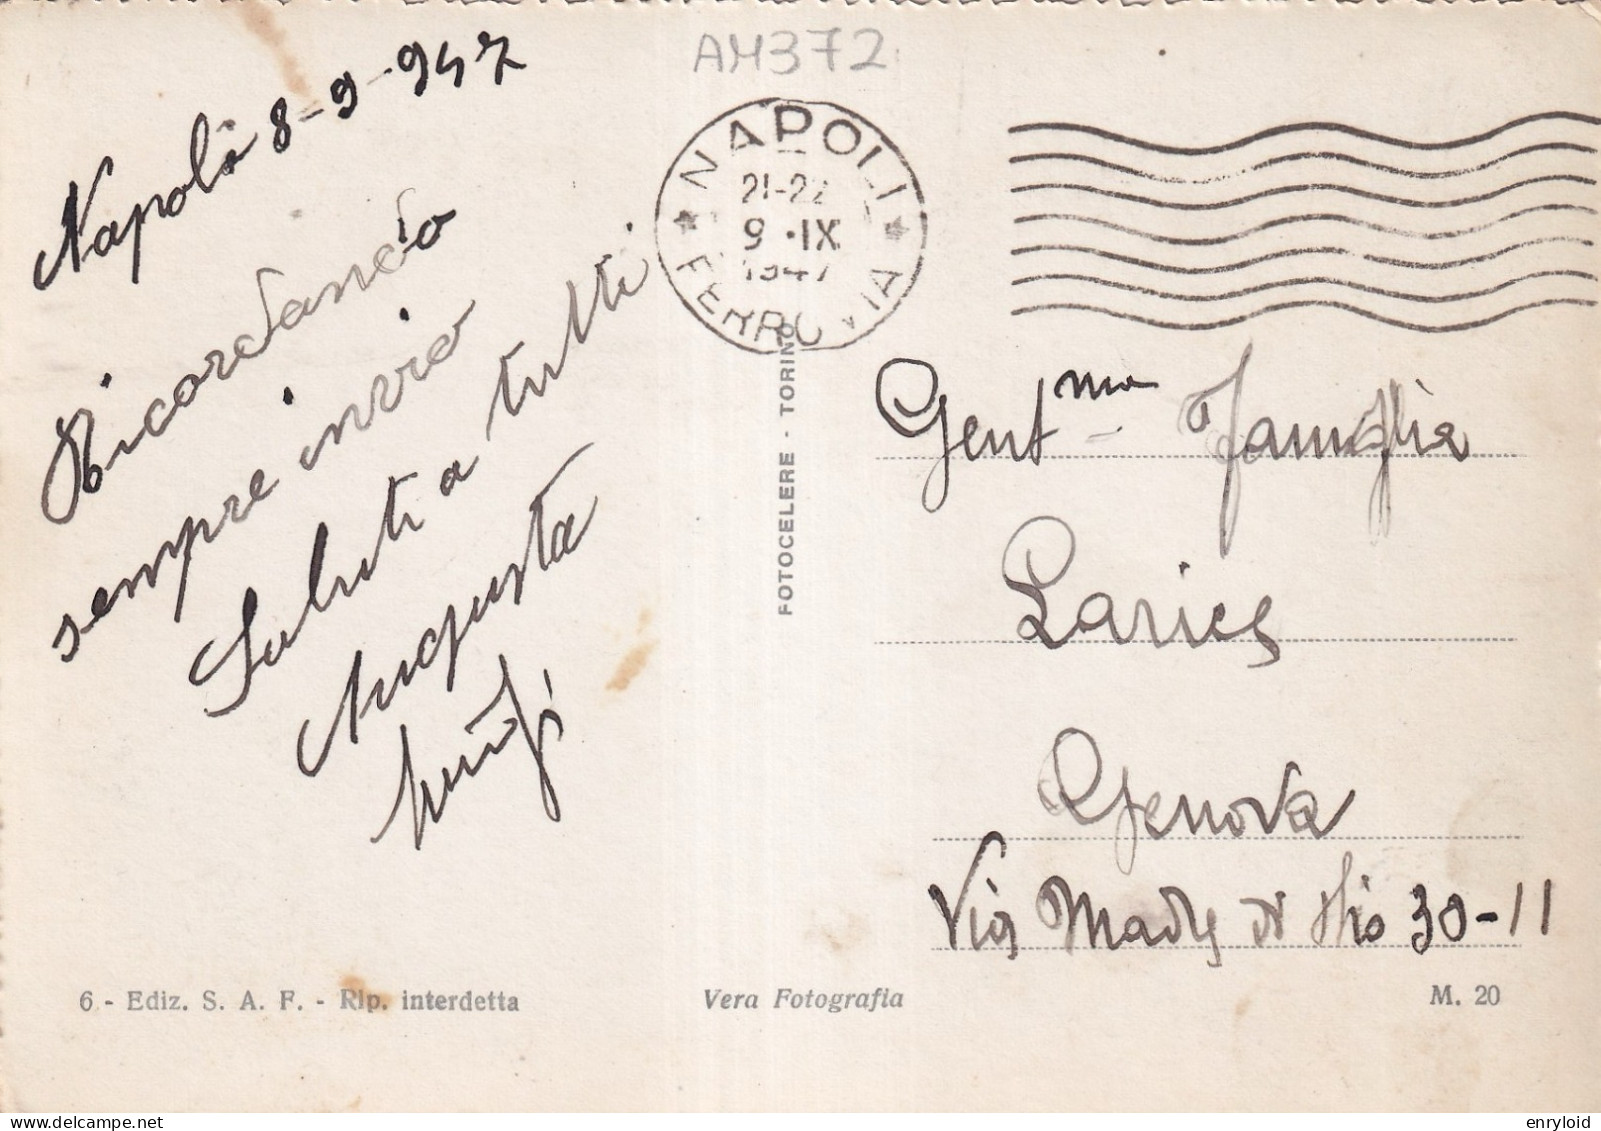 AM372
Napoli 8-9-947
Ricordando
sempre invio
Saluti a tutti
Augusta
Luigi
NAPOLI
21-22
9 · IX
1947
FERROVIA
FOTOCELERE - TORINO
Gent ma Famiglia
Genova
Via Madre di Dio 30-11
6 - Ediz. S. A. F. - Rip. interdetta
Vera Fotografia
M. 20
enryloid
delcampe.net